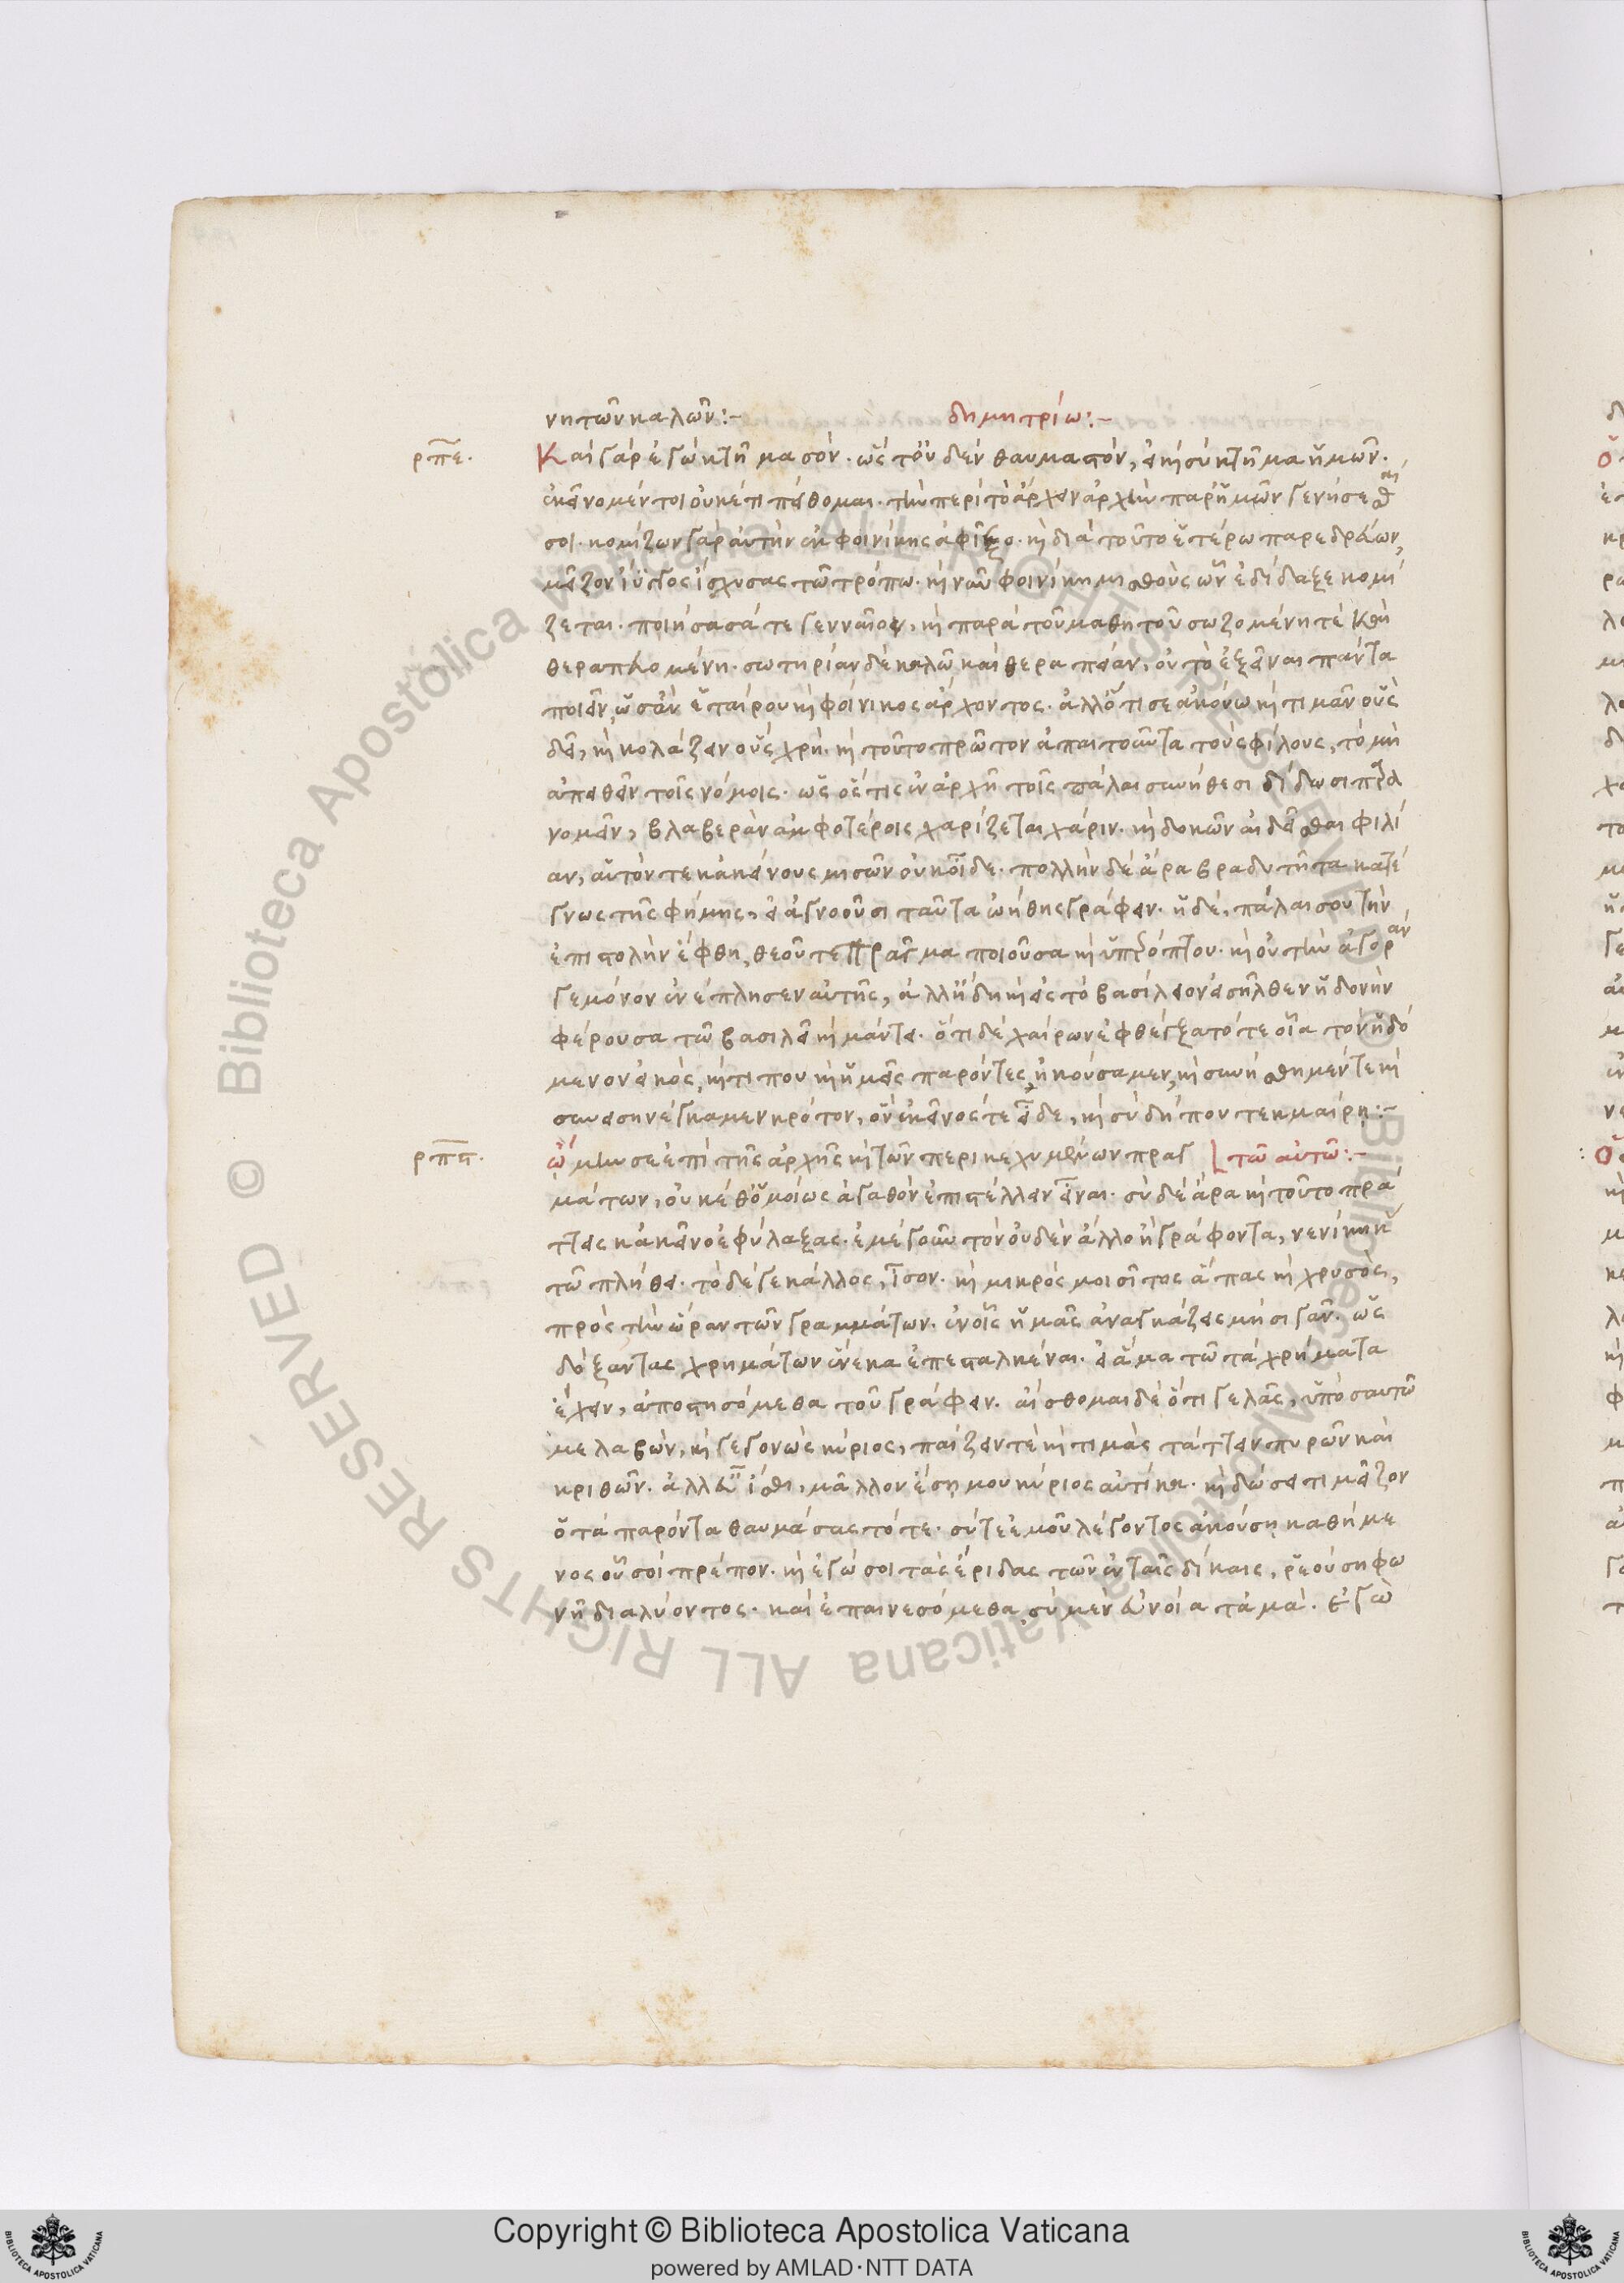 νητῶν καλῶν:– δημητρίω:–
ρπε. Καὶ γὰρ ἐγὼ κτῆμα σόν. ὥστ' οὐδὲν θαυμαστὸν, εἰ καὶ σὺ κτῆμα ἡμῶν.
ἐκεῖνο μέντοι οὐκέτι πείθομαι. τὴν περὶ τὸ ἄρχειν ἀρχὴν παρ' ἡμῶν γενήσεσθαι
σοι. νομίζων γὰρ αὐτὴν ἐκ φοινίκης ἀφῖξο. καὶ διὰ τοῦτο ἑτέρω παρεδρεύων,
μεῖζον ἰσχύσας τῶ τρόπω. καὶ νῦν φοινίκη μισθοὺς ὧν ἐδίδαξε κομί
ζεται. ποιήσασά τε γενναῖον, καὶ παρὰ τοῦ μαθητοῦ σωζομένη τὲ καὶ
θεραπευομένη. σωτηρίαν δὲ καλῶ καὶ θεραπείαν, οὐ τὸ ἐξεῖναι πάντα
ποιεῖν, ὡς ἂν ἑταίρου καὶ φοίνικος ἄρχοντος. ἀλλ' ὅτι σε ἀκούω καὶ τιμᾶν οὓς
δεῖ, καὶ κολάζειν οὓς χρή. καὶ τοῦτο πρῶτον ἀπαιτοῦντα τοὺς φίλους, τὸ μὴ
ἀπειθεῖν τοῖς νόμοις. ὡς ὅστις ἐν ἀρχῆ τοῖς πάλαι συνήθεσι δίδωσι παρα
νομεῖν, βλαβερὰν ἀμφοτέροις χαρίζεται χάριν. καὶ δοκῶν αἰδεῖσθαι φιλί
αν, αὑτόν τε κἀκείνους μισῶν οὐκ οἶδε. πολλὴν δὲ ἄρα βραδυτῆτα κατέ
γνως τῆς φήμης, εἰ ἀγνοοῦσι ταῦτα ὠήθης γράφειν. ἡ δέ, πάλαι σου τὴν
ἐπιστολὴν ἔφθη, θεοῦ τε πρᾶγμα ποιοῦσα καὶ ὑποπτέρου. καὶ οὐ τὴν ἀγορὰν
γε μόνον ἐνέπλησεν αὐτῆς, ἀλλ' ἤδη καὶ εἰς τὸ βασίλειον εἰσῆλθεν ἡδονὴν
φέρουσα τῶ βασιλεῖ καὶ μάντει. ὅτι δὲ χαίρων ἐφθέγξατό τε οἷα τὸν ἡδό
μενον εἰκὸς, καί τι που καὶ ἡμεῖς παρόντες ἠκούσαμεν, καὶ συνήσθημέν τε καὶ
συνεισηνέγκαμεν κρότον, ὃν ἐκεῖνός τε εἶδε, καὶ σὺ δήπου τεκμαίρη:–
ρπϛ. ὤμην σε ἐπὶ τῆς ἀρχῆς καὶ τῶν περικεχυμένων πραγ τῶ αὐτῶ:–
μάτων, οὐκέθ' ὁμοίως ἀγαθὸν ἐπιστέλλειν εἶναι. σὺ δὲ ἄρα καὶ τοῦτο πρά
ττεις κἀκεῖνο ἐφύλαξας. ἐμὲ γοῦν τὸν οὐδὲν ἄλλο ἢ γράφοντα, νενίκηκ
τῶ πλήθει. τὸ δέ γε κάλλος, ἴσον. καὶ μικρός μοι σῖτος ἅπας καὶ χρυσὸς,
πρὸς τὴν ὥραν τῶν γραμμάτων. ἐν οἷς ἡμᾶς ἀναγκάζεις μὴ σιγᾶν. ὡς
δόξαντας χρημάτων ἕνεκα ἐπεσταλκέναι. εἰ ἅμα τῶ τὰ χρήματα
ἔχειν, ἀποστησόμεθα τοῦ γράφειν. αἴσθομαι δὲ ὅτι γελᾶς, ὑπὸ σαυτῶ
με λαβὼν, καὶ γεγονὼς κύριος, παίζειν τὲ καὶ τιμὰς τάττειν πυρῶν καὶ
κριθῶν. ἀλλ' εὖ ἴσθι, μᾶλλον ἔση μου κύριος αὐτίκα. καὶ δώσει τι μεῖζον
ὁ τὰ παρόντα θαυμάσας τότε. σύ τε ἐμοῦ λέγοντος ἀκούση καθήμε
νος οὗ σοὶ πρέπον. καὶ ἐγώ σοι τὰς ἔριδας τῶν ἐν ταῖς δίκαις, ῥεούση φω
νῆ διαλύοντος. καὶ ἐπαινεσόμεθα, σὺ μὲν εὐνοία τἀμά. ἐγὼ